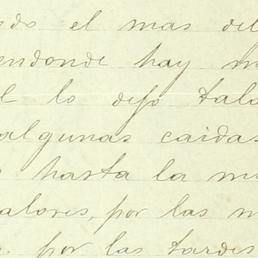 do el mas del
endonde hay m
l lo dejo tala
algunas caidas
hasta la m
alores, por las m
por las tardes